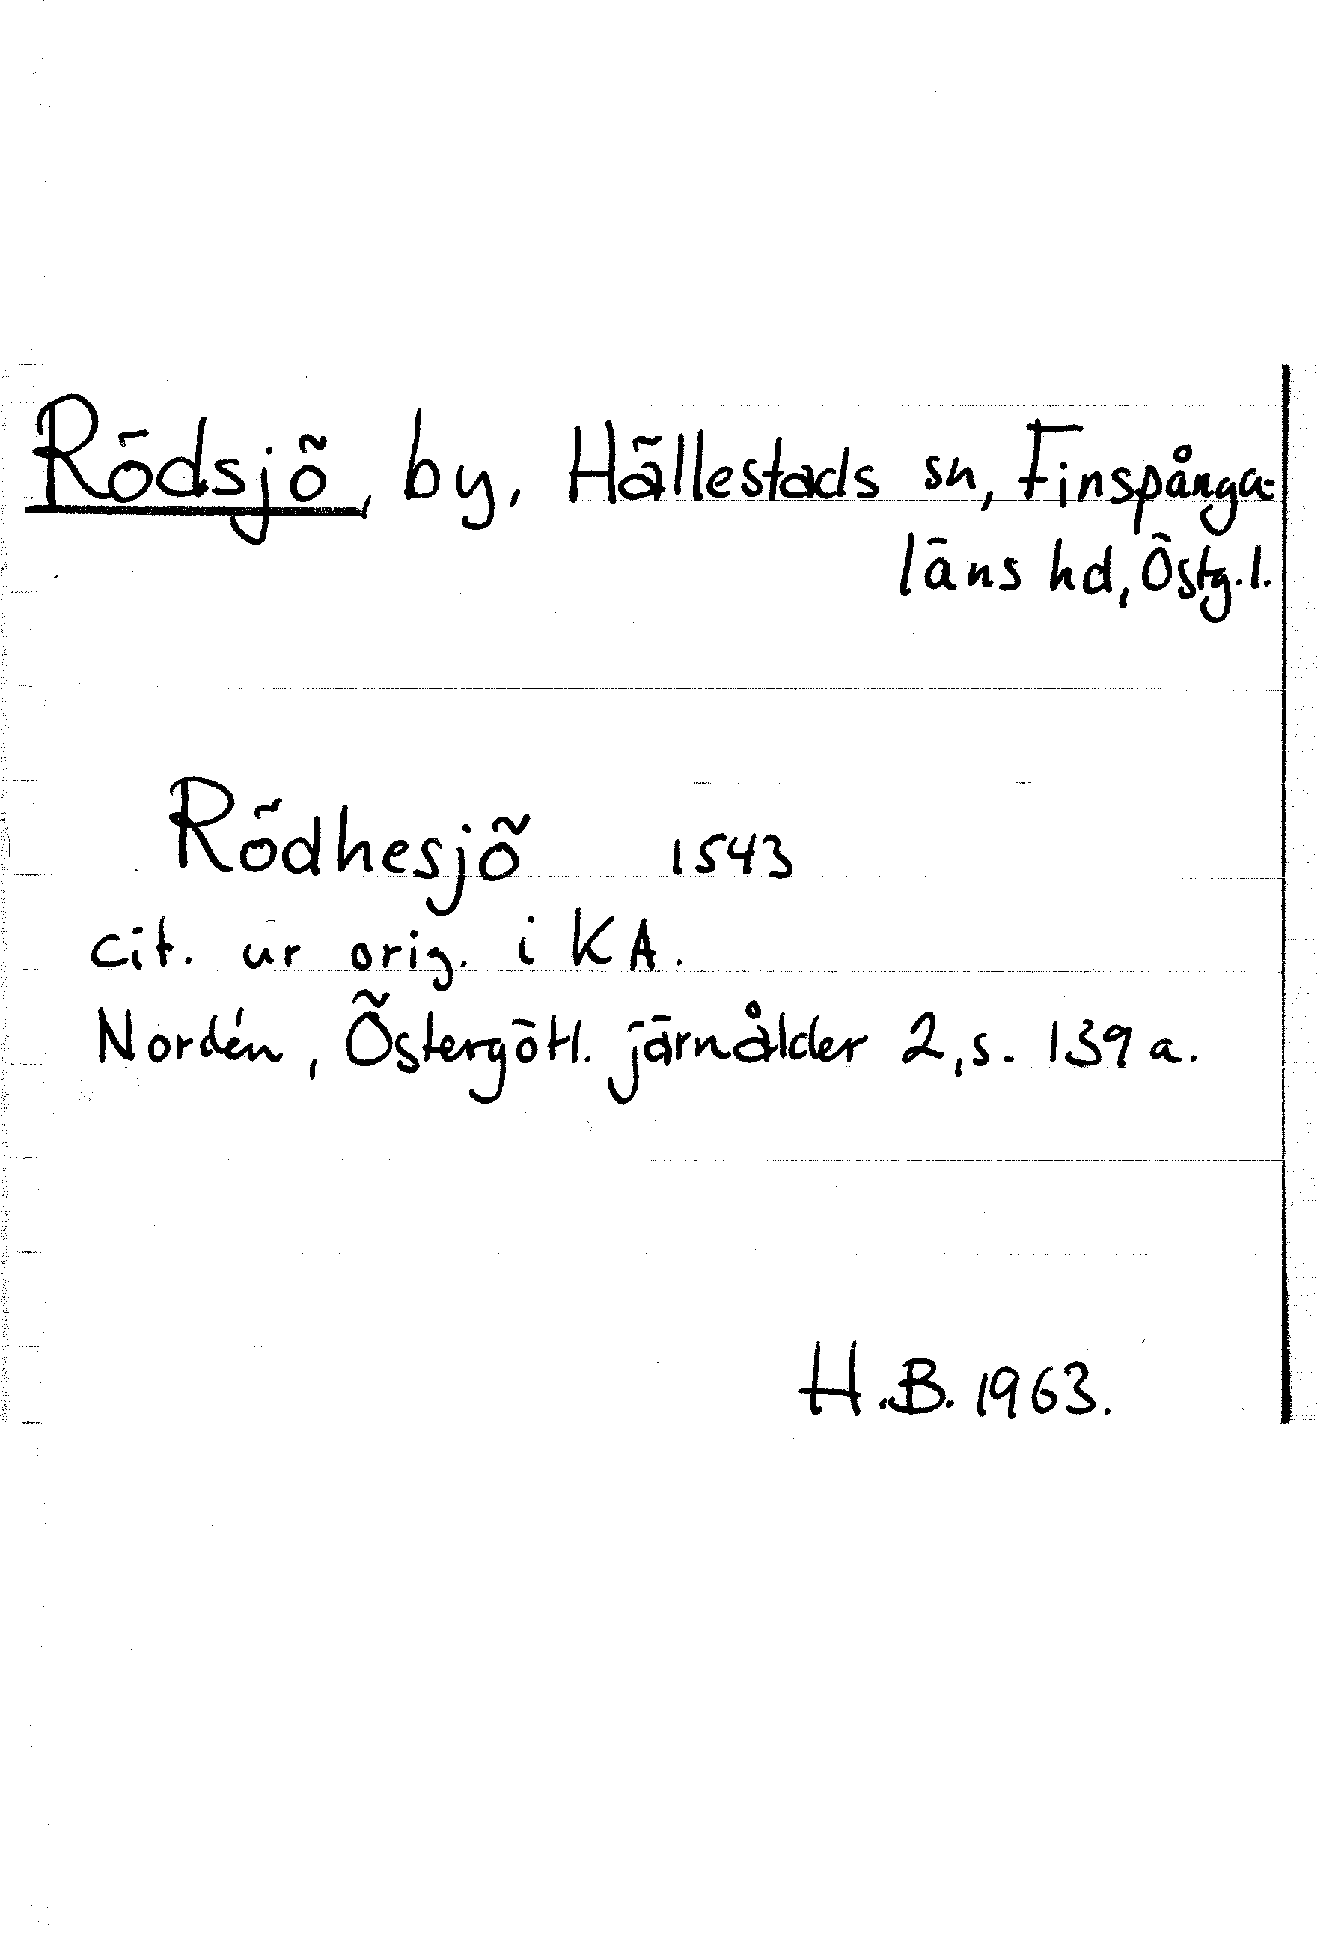 Rödsjö, by, Hällestads sn, Finspånga-
läns hd, Östg.l.
Rödhesjö 1543
cit. ur orig. i KA.
Nordén, Östergötl. järnålder 2, s. 139 a.
H.B. 1963.